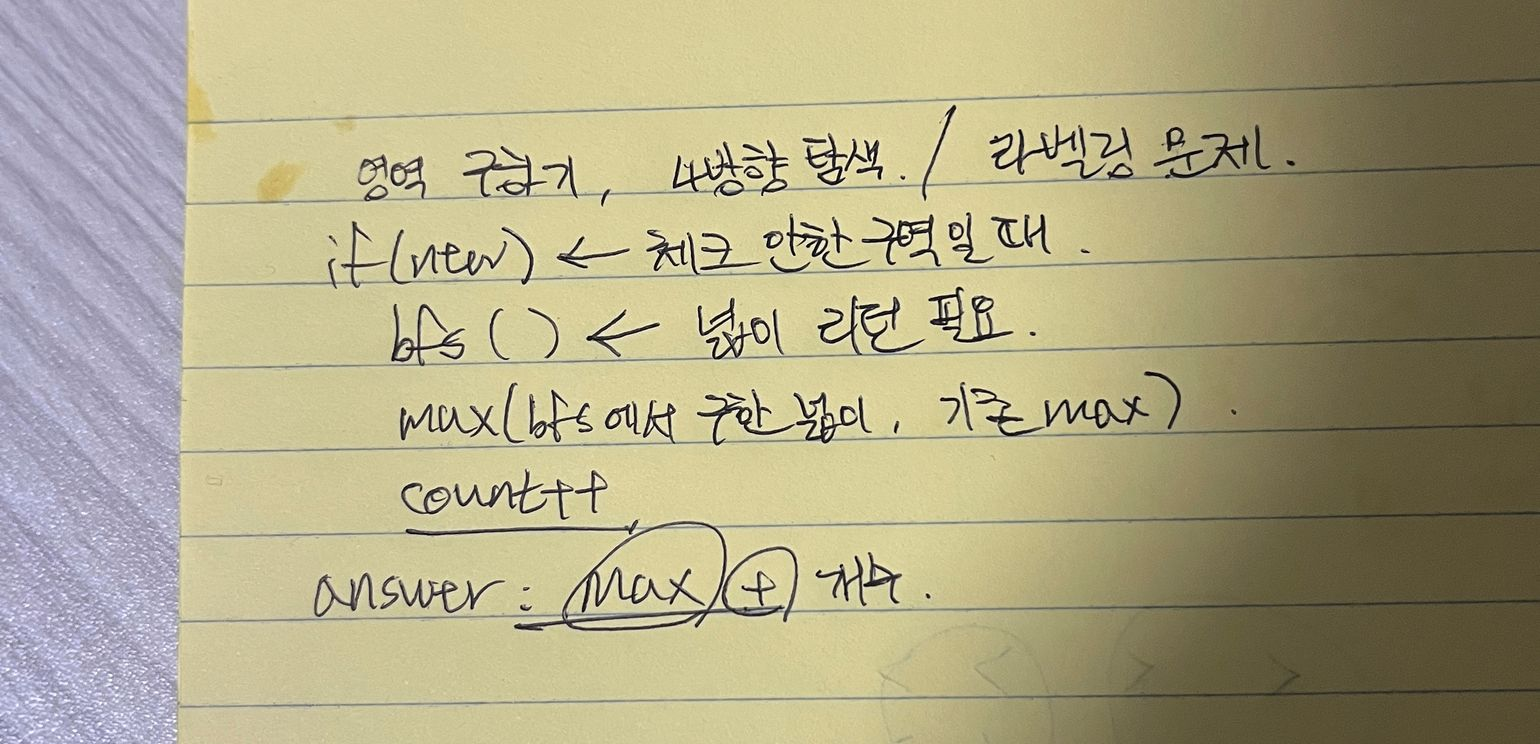 영역 구하기, 4방향 탐색. / 라벨링 문제.
if(new) ← 체크 안한 구역일 때.
bfs ( ) ← 넓이 리턴 필요.
max(bfs에서 구한 넓이, 기존 max).
count++
answer : max + 개수.